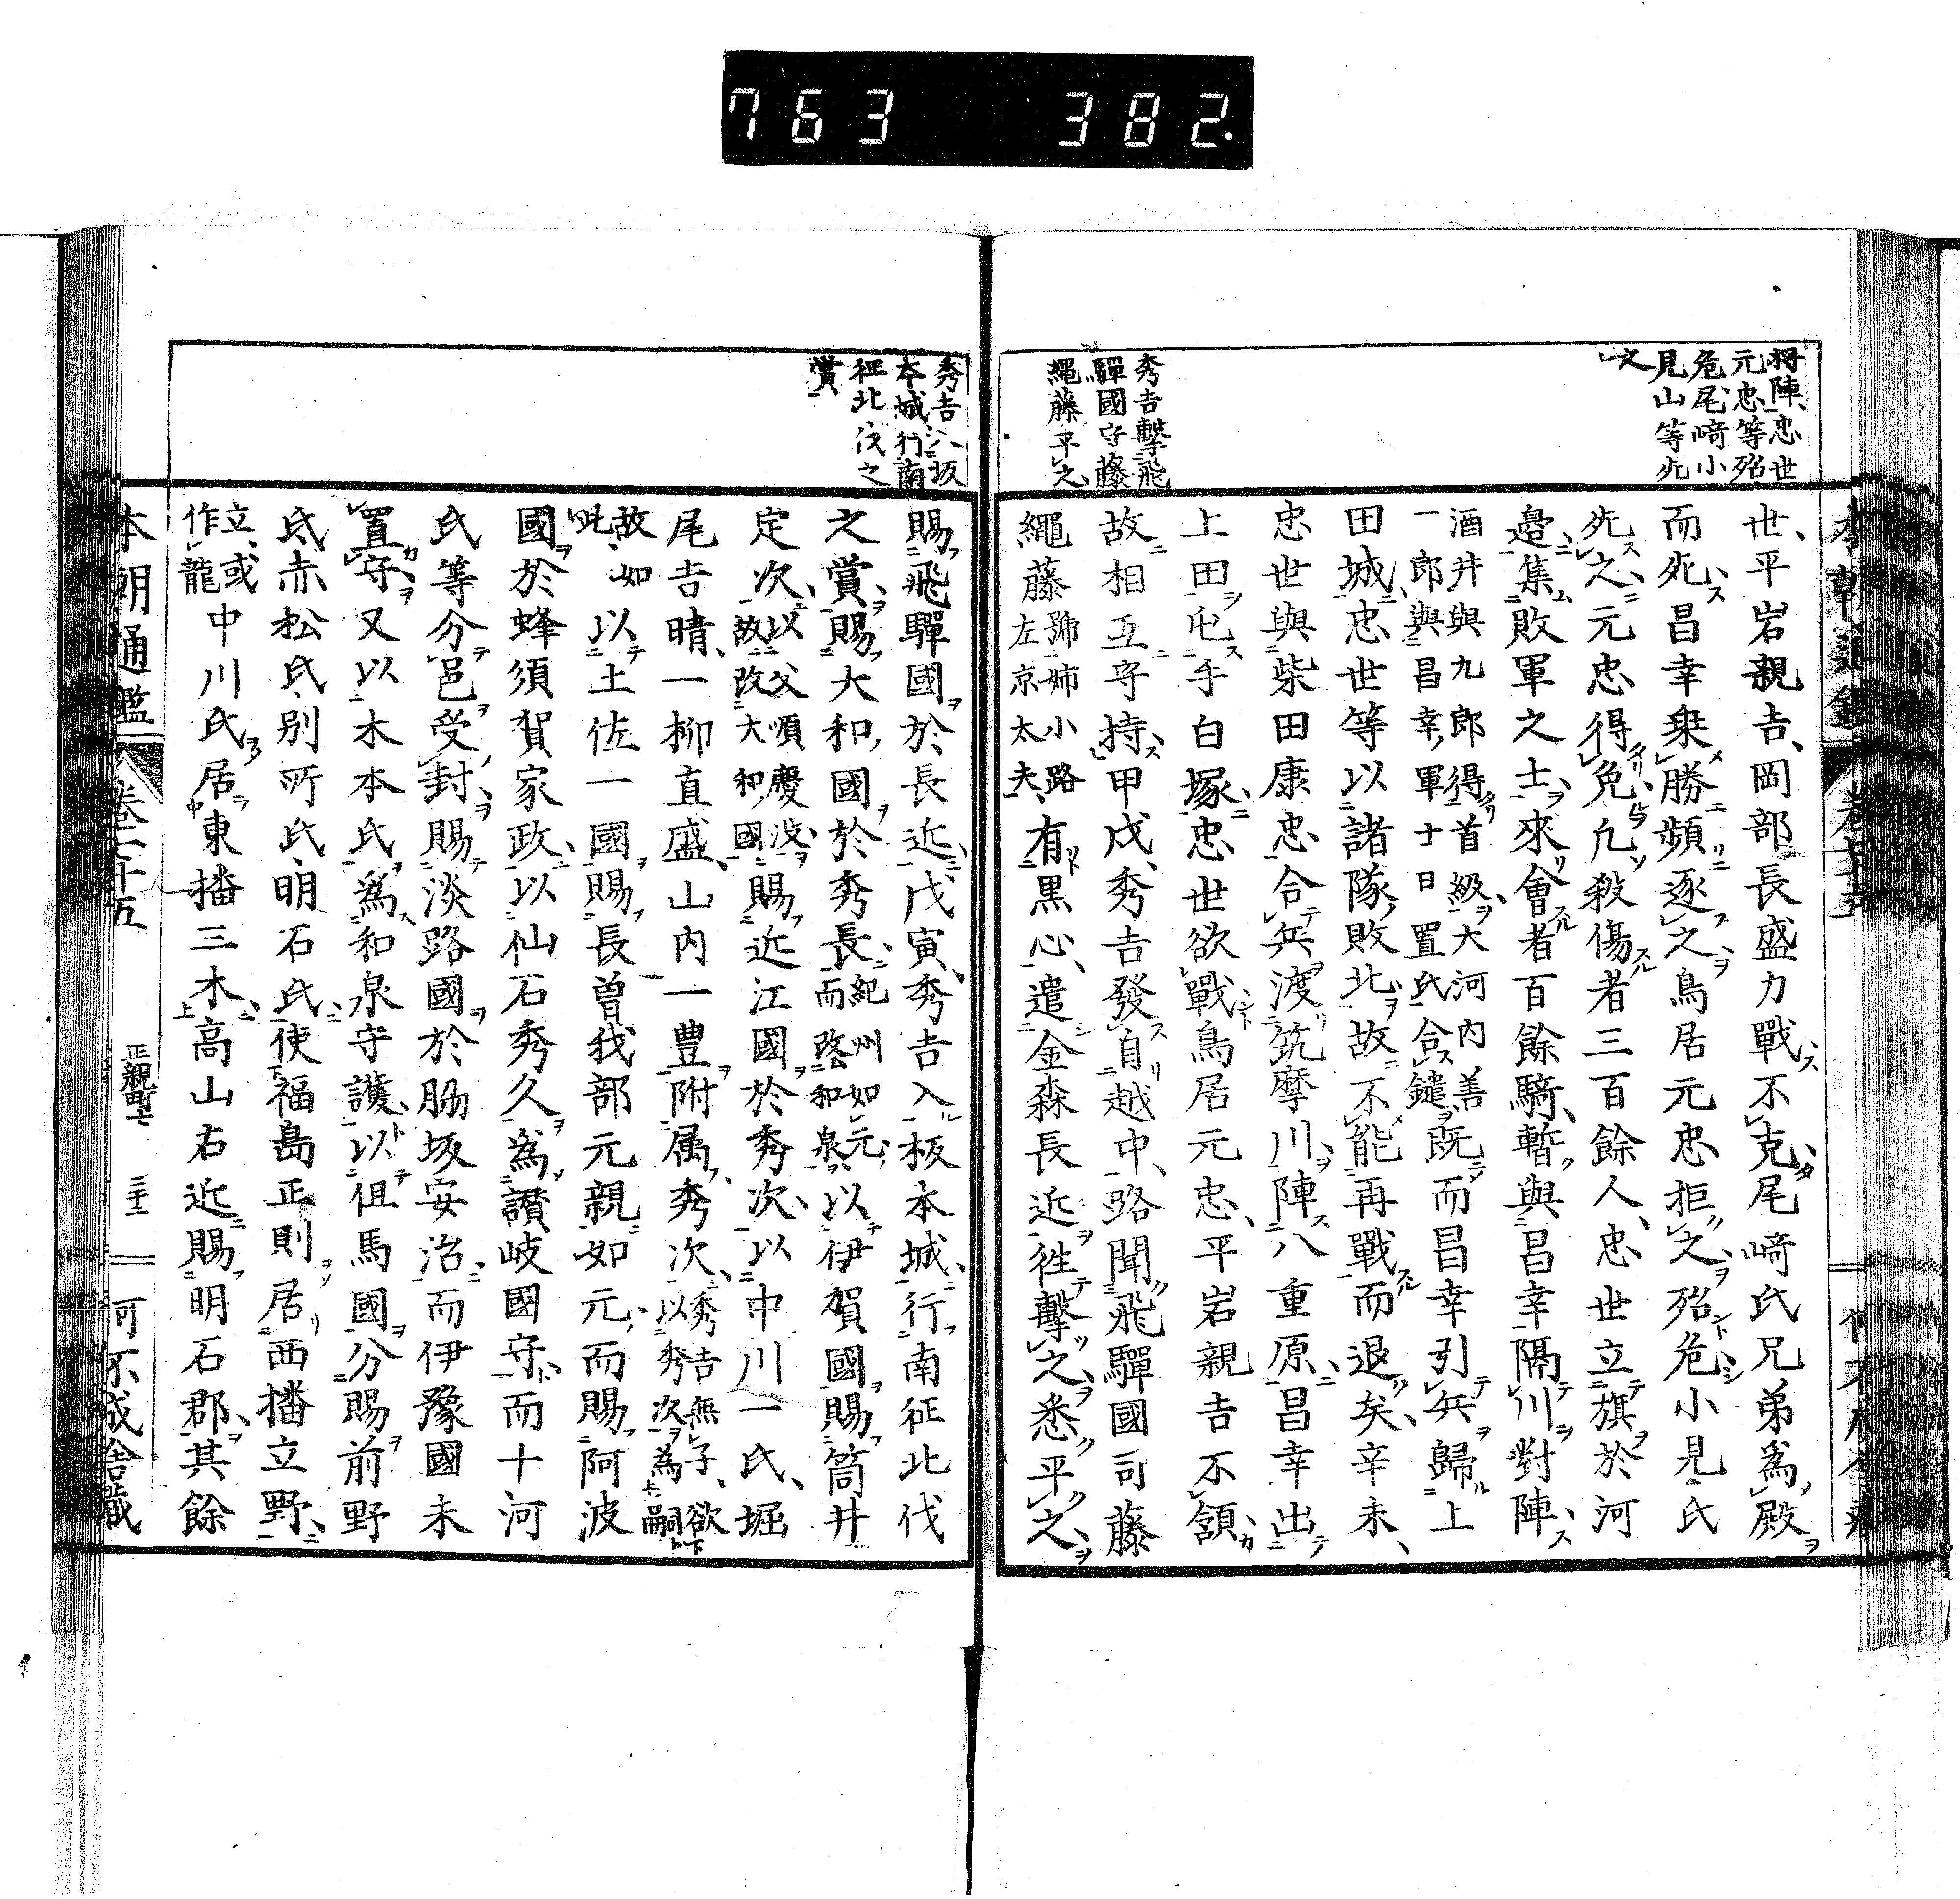 763 382.
将陣、忠世
元忠等殆
危尾﨑小
見山等死
之
秀吉擊飛
驒國守藤
繩藤平之
世、平岩親吉、岡部長盛力戰不克尾﨑氏兄弟爲殿
而死昌幸乗勝頻逐之鳥居元忠拒之殆危小見氏
死之元忠得免凢殺傷者三百餘人、忠世立旗於河
邉集敗軍之士來會者百餘騎、暫與昌幸隔川對陣
酒井與九郎得首級大河内善
一郎與昌幸軍士日置氏合鑓
既而昌幸引兵歸上
田城忠世等以諸隊敗北故不能再戰而退矣、辛未、
忠世與柴田康忠合兵渡筑摩川陣八重原昌幸出
上田屯手白塚忠世欲戰鳥居元忠、平岩親吉不頷
故相互守持甲戌、秀吉發自越中路聞飛驒國司藤
繩藤
號姉小路
左京太夫
有黒心遣金森長近往擊之悉平之
秀吉入坂
本城行南
征北伐之
賞
賜飛驒國於長近戊寅、秀吉入板本城行南征北伐
之賞賜大和國於秀長
紀州如元
而改和泉
以伊賀國賜筒井
定次
以父順慶没
故改大和國
賜近江國於秀次以中川一氏、堀
尾吉晴、一柳直盛、山内一豊附属秀次
秀吉無子、欲
以秀次為嗣
故如
此、
以土佐一國賜長曽我部元親如元而賜阿波
國於蜂須賀家政以仙石秀久爲讃岐國守而十河
氏等分邑受封賜淡路國於脇坂安治而伊豫國未
置守又以木本氏爲和泉守護以伹馬國分賜前野
氏赤松氏別所氏明石氏使福島正則居西播立野
立、或
作龍
中川氏居東播三木高山右近賜明石郡其餘
本朝通鑑
卷七十五
正親町
三十二